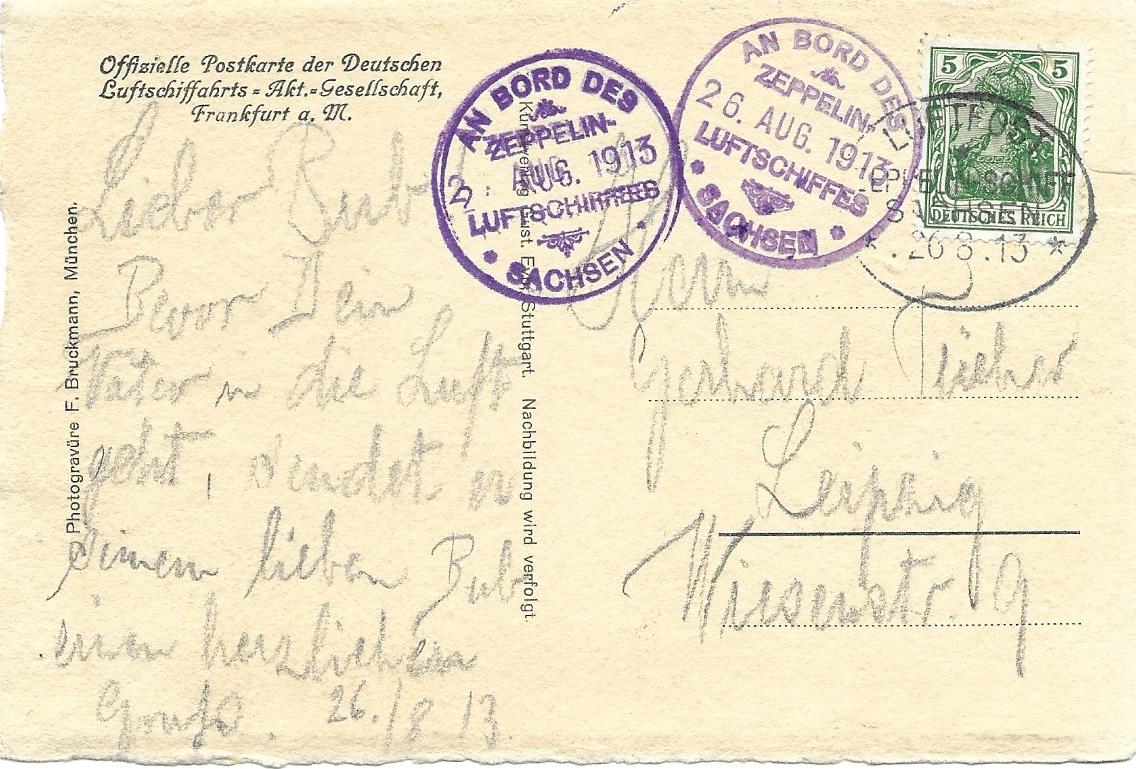 Offizielle Postkarte der Deutschen
Luftschiffahrts-Akt.-Gesellschaft,
Frankfurt a. M.
AN BORD DES
ZEPPELIN-
AUG. 1913
LUFTSCHIFFES
SACHSEN
AN BORD DES
ZEPPELIN-
26. AUG. 1913
LUFTSCHIFFES
SACHSEN
5 5
DEUTSCHES REICH
LUFTPOST
26 8.13
Photogravüre F. Bruckmann, München.
Stuttgart. Nachbildung wird verfolgt.
Lieber Bub
Bevor Dein
Vater in die Luft
geht, sendet er
seinem lieben Bub
einen herzlichen
Gruß. 26./8.13.
Herrn
Gerhard
Leipzig
Wiesenstr. 9